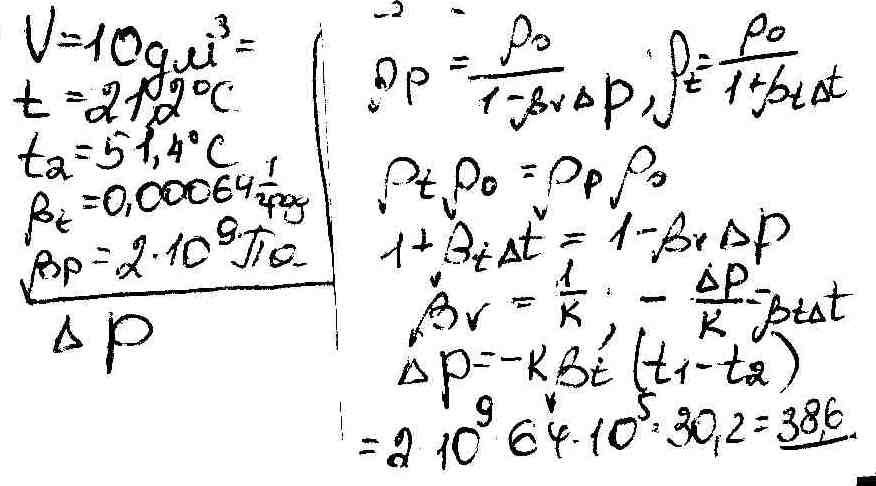 V=10дм³=
t=21,2°C
t₂=51,4°C
βt=0,00064 1/град
βp=2·10⁹ Па
Δp
ρp = ρ₀/(1-βvΔp); ρt = ρ₀/(1+βtΔt)
ρt ρ₀ = ρp ρ₀
1+βtΔt = 1-βvΔp
βv = 1/K; -Δp/K = βtΔt
Δp=-Kβt(t₁-t₂)
=2·10⁹ 64·10⁵·30,2=38,6